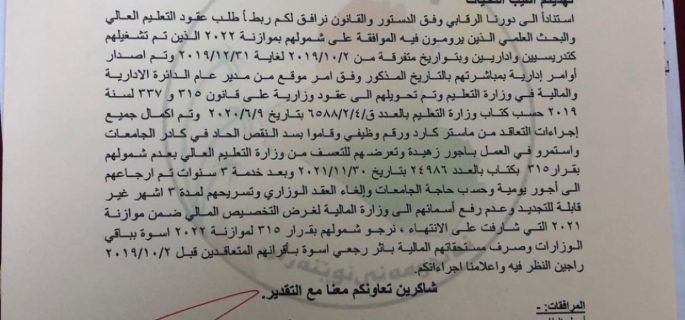 نهديكم أطيب التحيات
استناداً الى دورنا الرقابي وفق الدستور والقانون نرافق لكم ربطاً طلب عقود التعليم العالي
والبحث العلمي الذين يرومون فيه الموافقة على شمولهم بموازنة ٢٠٢٢ الذين تم تشغيلهم
كتدريسيين واداريين وبتواريخ متفرقة من ٢٠١٩/١٠/٢ لغاية ٢٠١٩/١٢/٣١ وتم اصدار
أوامر إدارية بمباشرتهم بالتاريخ المذكور وفق امر موقع من مدير عام الدائرة الادارية
والمالية في وزارة التعليم وتم تحويلهم الى عقود وزارية على قانون ٣١٥ و ٣٣٧ لسنة
٢٠١٩ حسب كتاب وزارة التعليم بالعدد ق/٦٥٨٨/٢/٤ بتاريخ ٢٠٢٠/٦/٩ وتم اكمال جميع
إجراءات التعاقد من ماستر كارد ورقم وظيفي وقاموا بسد النقص الحاد في كادر الجامعات
واستمرو في العمل باجور زهيدة وتعرضهم للتعسف من وزارة التعليم العالي بعدم شمولهم
بقرار٣١٥ بكتاب بالعدد ٢٤٩٨٦ بتاريخ ٢٠٢١/١١/٣٠ وبعد خدمة ٣ سنوات تم ارجاعهم
الى أجور يومية وحسب حاجة الجامعات وإلغاء العقد الوزاري وتسريحهم لمدة ٣ اشهر غير
قابلة للتجديد وعدم رفع أسمائهم الى وزارة المالية لغرض التخصيص المالي ضمن موازنة
٢٠٢١ التي شارفت على الانتهاء ، نرجو شمولهم بقرار ٣١٥ لموازنة ٢٠٢٢ اسوة بباقي
الوزارات وصرف مستحقاتهم المالية باثر رجعي اسوة بأقرانهم المتعاقدين قبل ٢٠١٩/١٠/٢
راجين النظر فيه واعلامنا اجراءاتكم.
شاكرين تعاونكم معنا مع التقدير.
المرافقات:-